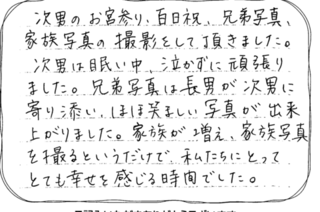 次男のお宮参り、百日祝、兄弟写真、
家族写真の撮影をして頂きました。
次男は眠い中、泣かずに頑張り
ました。兄弟写真は長男が次男に
寄り添い、ほほ笑ましい写真が出来
上がりました。家族が増え、家族写真
を撮るというだけで、私たちにとって
とても幸せを感じる時間でした。